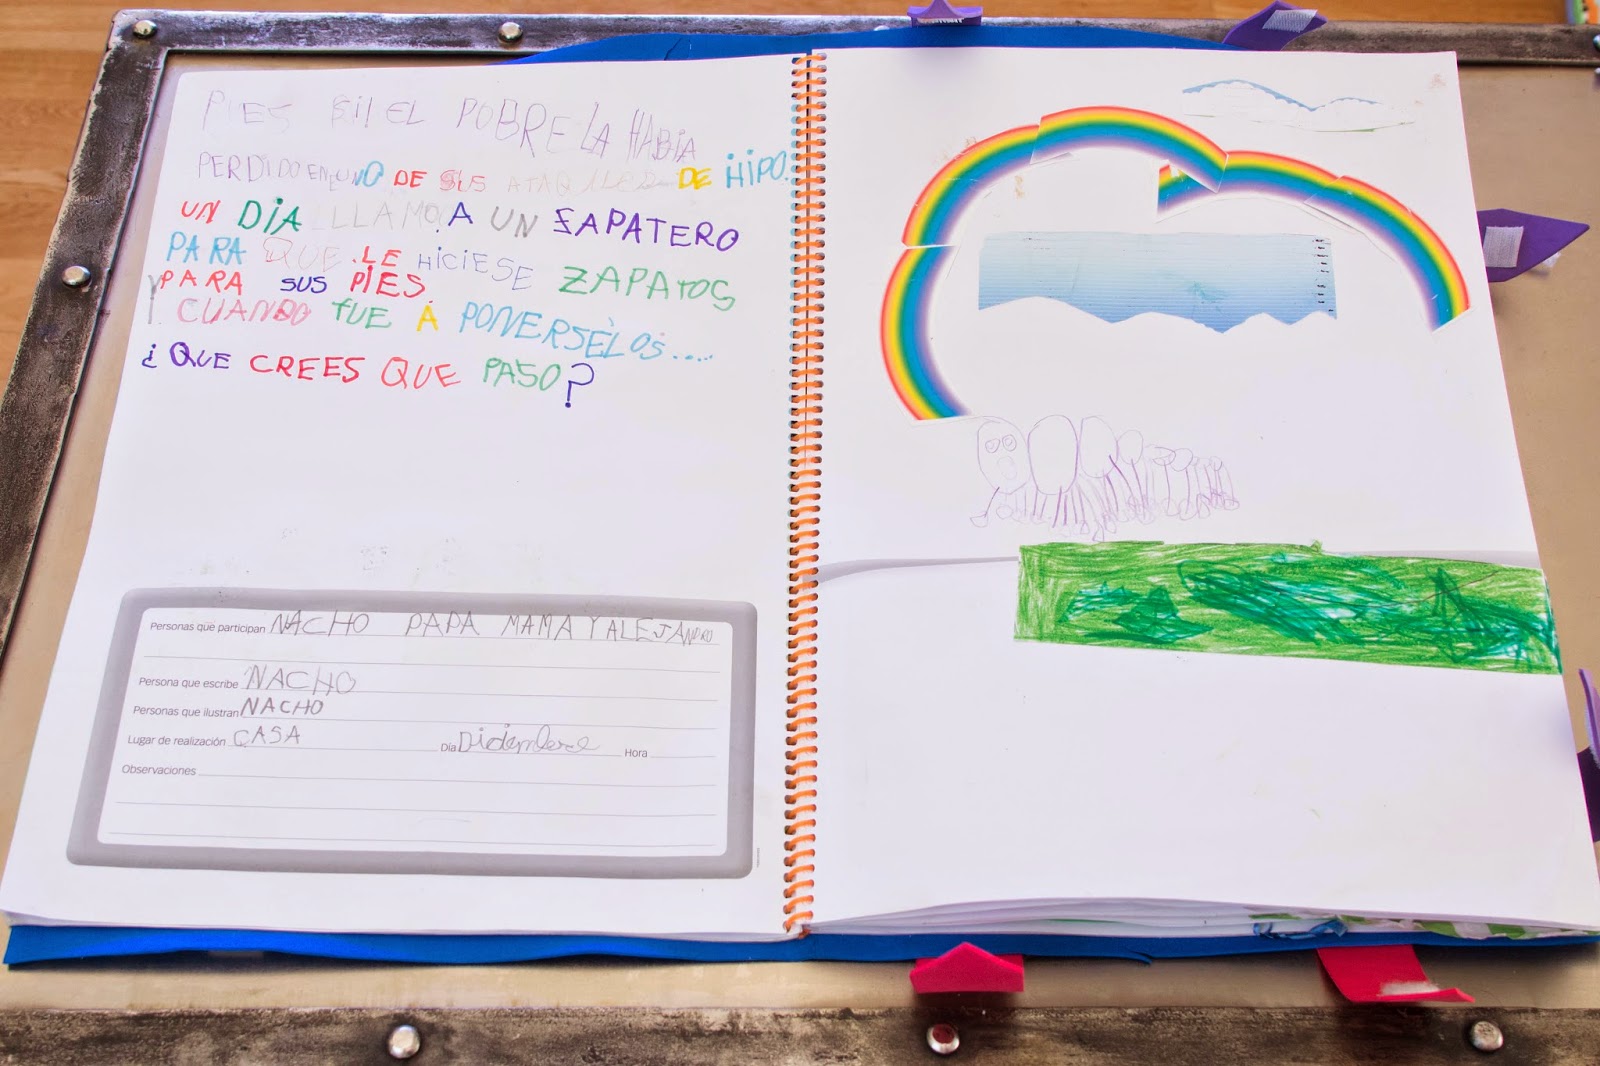 PIES EL POBRE LA HABIA
PERDIDO EN UNO DE SUS ATAQUES DE HIPO.
UN DÍA LLAMO A UN ZAPATERO
PARA QUE LE HICIESE ZAPATOS
PARA SUS PIES.
Y CUANDO FUE A PONERSÈLOS.....
¿QUE CREES QUE PASO?
Personas que participan NACHO PAPA MAMA Y ALEJANDRO
Persona que escribe NACHO
Personas que ilustran NACHO
Lugar de realización CASA Día Diciembre Hora
Observaciones